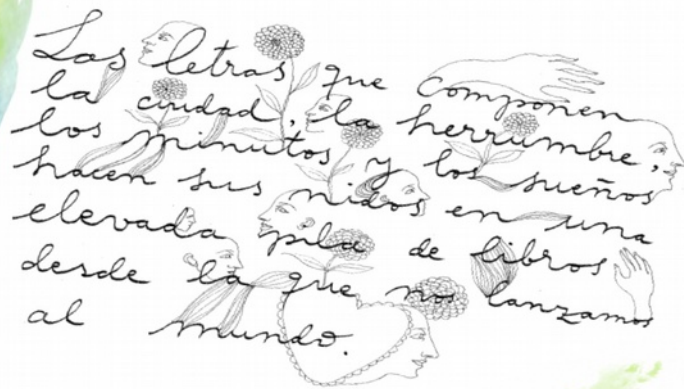 Las letras que componen
la ciudad, la herrumbre,
los minutos y los sueños
hacen sus nidos en una
elevada pila de libros
desde la que nos lanzamos
al mundo.